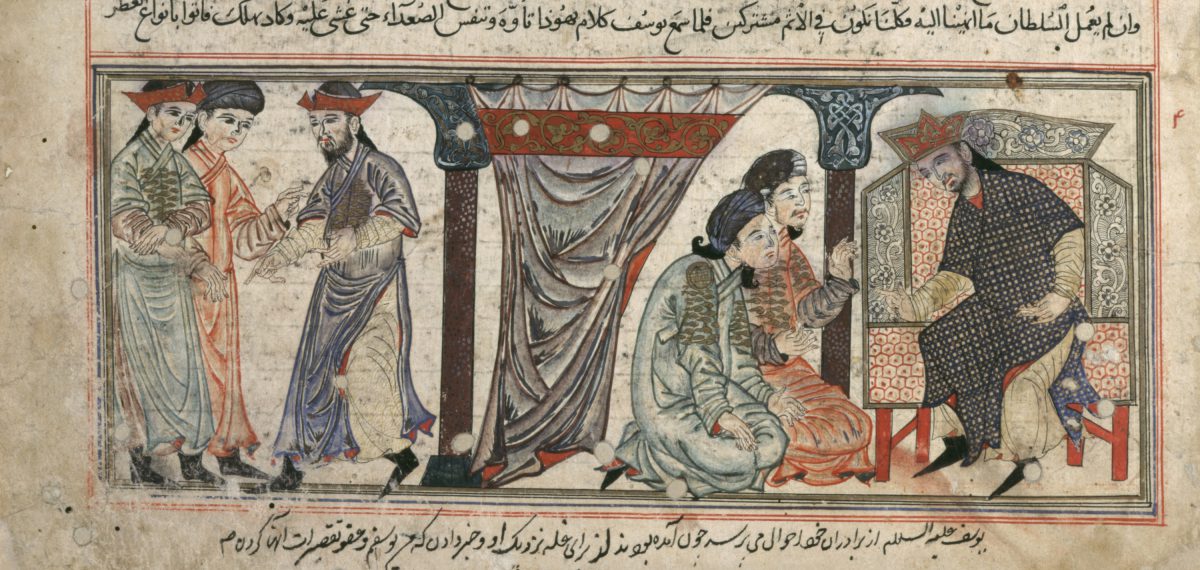 وان لم يعمل السلطان ما انهينا اليه وكلنا نكون في الاثم مشتركين فلما سمع يوسف كلام يهوذا تأوّه وتنفس الصعداء حتى غشي عليه وكاد يهلك فاتوا بانواع العطر
٤
يوسف عليه السلام از برادران خود احوال می پرسد چون آمده بودند از برای غله نزدیک او و خبر دادن که من یوسفم و عفو تقصیرات آنها کرده ام